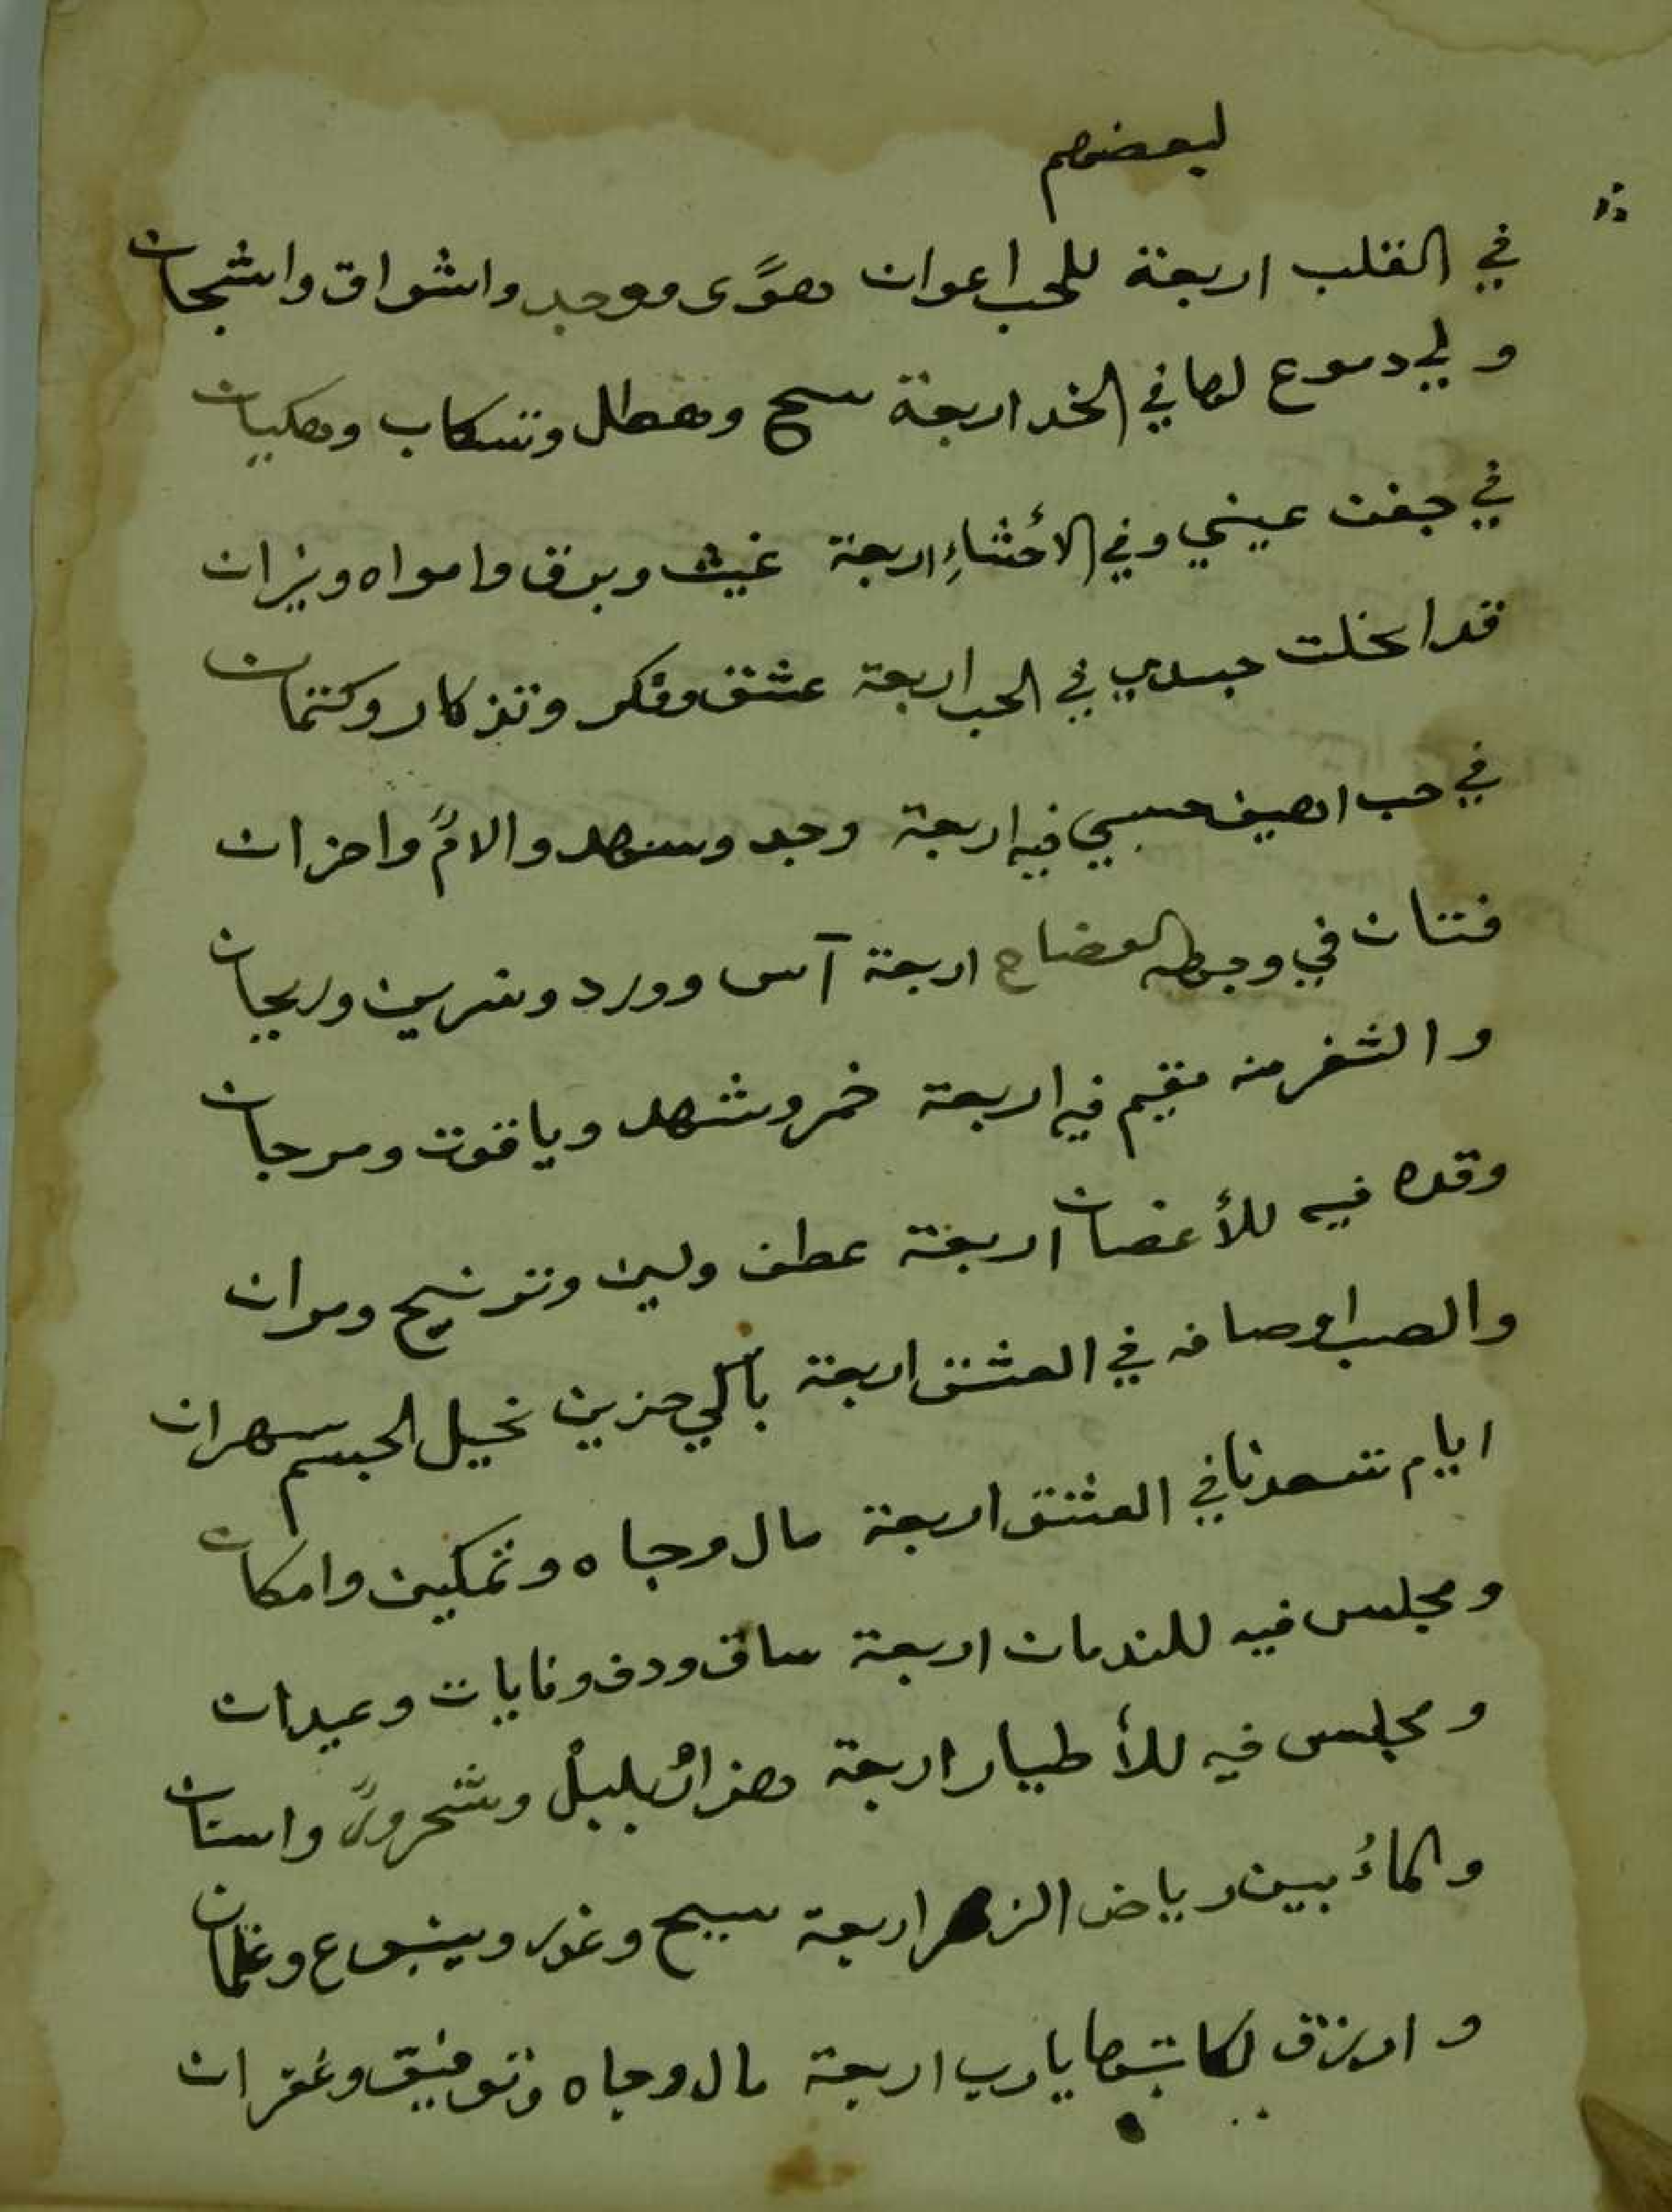 لبعضهم
في القلب اربعة للحب اعوان هوًى ووجد واشواق واشجان
ولي دموع لها في الخد اربعة سح وهطل وتسكاب وهكيان
في جفن عيني وفي الأحشاءِ اربعة غيث وبرق وامواه ونيران
قد انحلت جسدي في الحب اربعة عشق وفكر وتذكار وكتمان
في حب اهيف حسبي فيه اربعة وجد وسهد والامٌ واحزان
فتان في وجهه الوضاح اربعة آس وورد ونسرين وريحان
والثغر منه مقيم فيه اربعة خمر وشهد وياقوت ومرجان
وقده فيه للأغصان اربعة عطف ولين وترنيح ومران
والصب اوصافه في العشق اربعة باكي حزين نحيل الجسم سهران
ايام تسعدنا في العشق اربعة مال وجاه وتمكين وامكان
ومجلس فيه للندمان اربعة ساق ودف ونايات وعيدان
ومجلس فيه للأطيار اربعة هزارٌ بلبلٌ وشحرورً واسنان
والماءُ بين رياض الزهر اربعة سيح وغور وينبوع وغلمان
وارزق لكاتبها يارب اربعة مال وجاه وتوفيق وغفران